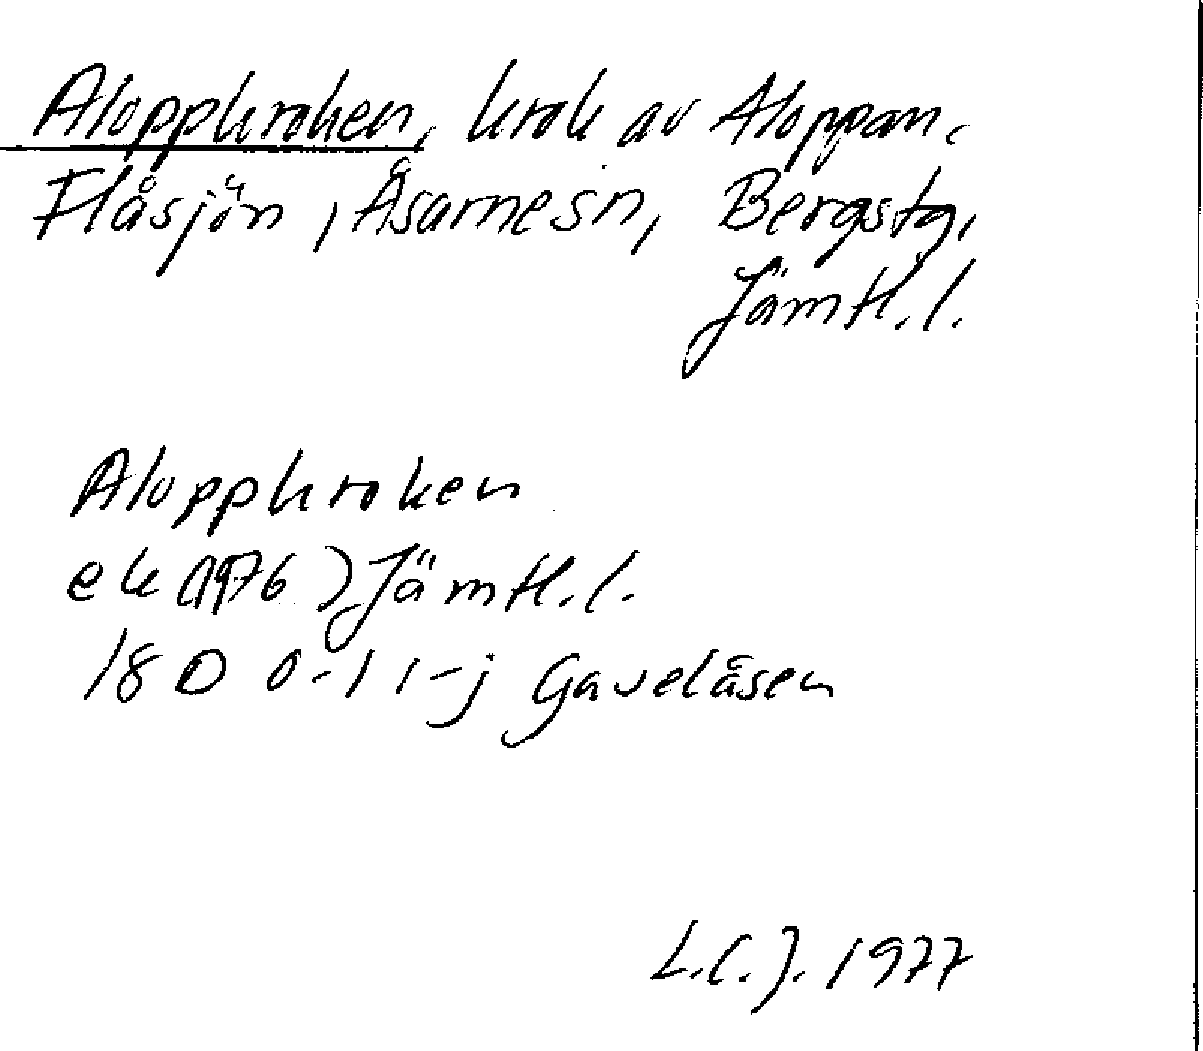 Aloppkroken, krok av Aloppan,
Flåsjön, Åsarnesn, Bergstg,
Jämtl. l.
Aloppkroken
ek (1976) Jämtl. l.
18 D 0-1 i-j Gaveåsen
L.C.J. 1977